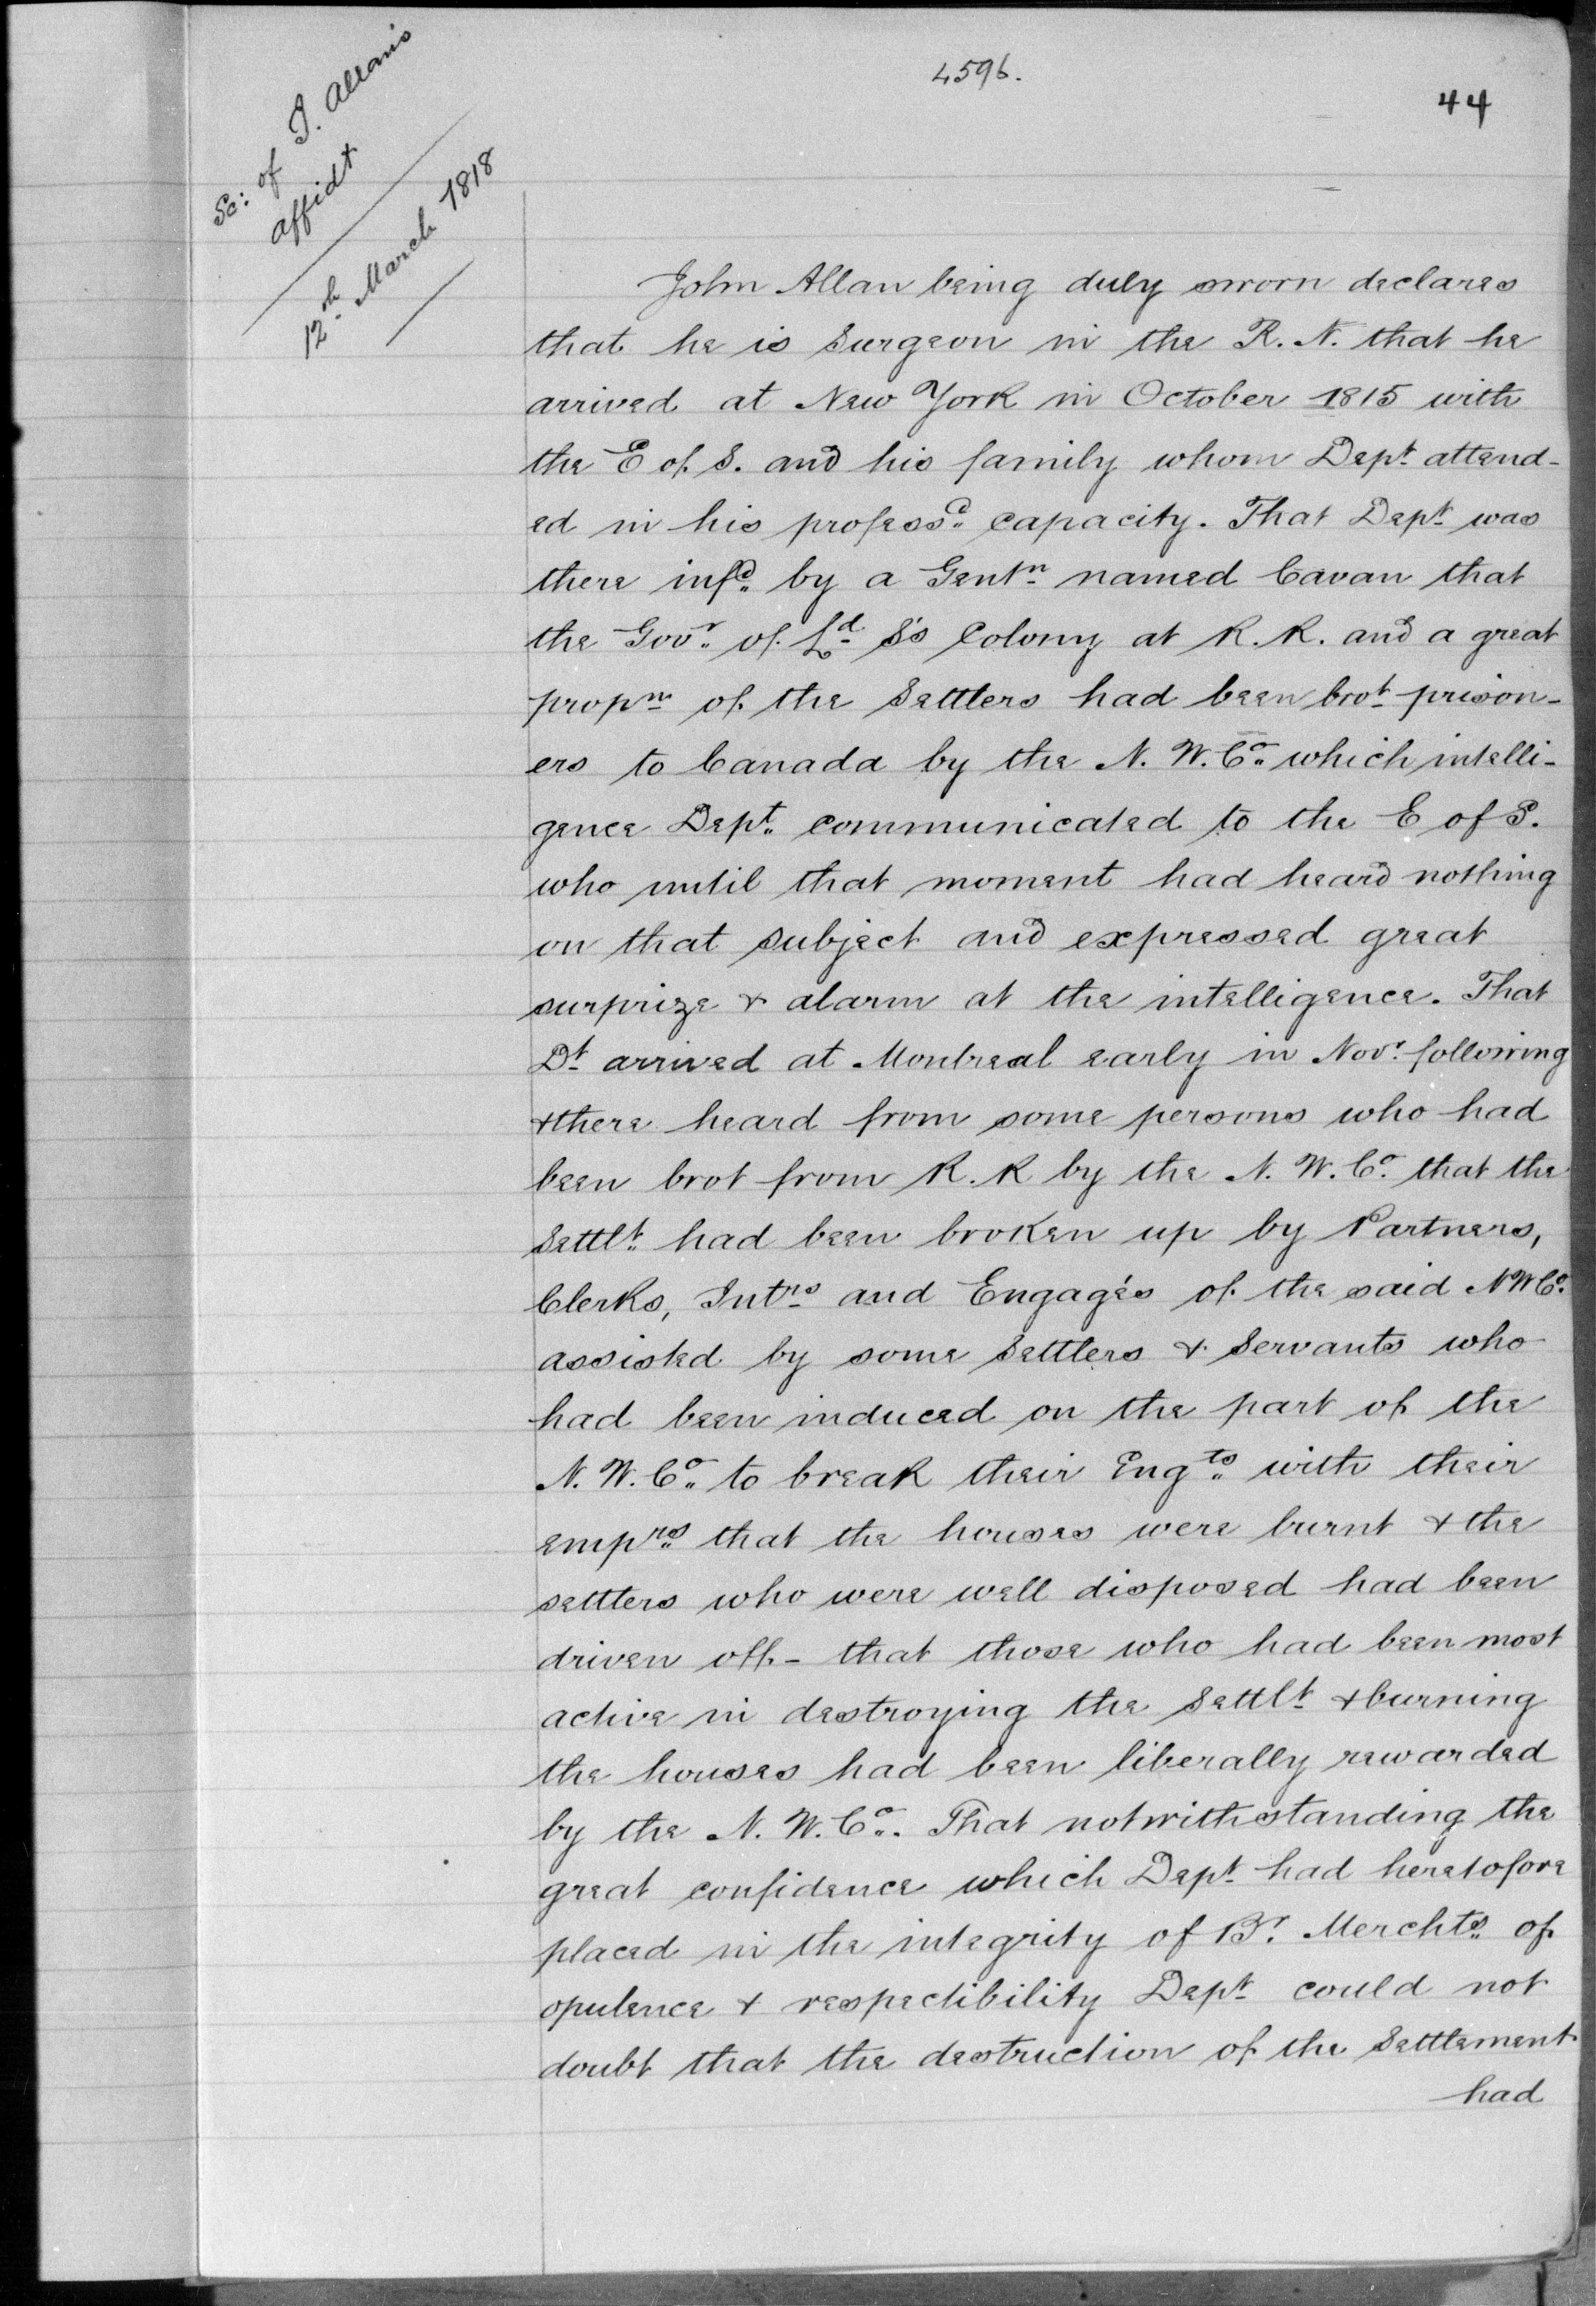 4596.
44
Sc: of J. Allan's
affidt
12th March 1818
John Allan being duly sworn declares
that he is Surgeon in the R. N. that he
arrived at New York in October 1815 with
the E of S. and his family whom Dept attend-
ed in his professd capacity. That Dept was
there infd by a Gentn named Cavan that
the Govr of Ld S's Colony at R. R. and a great
propn of the Settlers had been brot prison-
ers to Canada by the N. W. Co which intelli-
gence Dept communicated to the E of S.
who until that moment had heard nothing
on that subject and expressed great
surprize & alarm at the intelligence. That
Dt arrived at Montreal early in Novr following
& there heard from some persons who had
been brot from R. R by the N. W. Co that the
Settlt had been broken up by Partners,
Clerks, Intrs and Engagés of the said N W Co
assisted by some Settlers & Servants who
had been induced on the part of the
N. W. Co to break their Engts with their
emprs that the houses were burnt & the
settlers who were well disposed had been
driven off - that those who had been most
active in destroying the Settlt & burning
the houses had been liberally rewarded
by the N. W. Co. That notwithstanding the
great confidence which Dept had heretofore
placed in the integrity of Br Merchts of
opulence & respectibility Dept could not
doubt that the destruction of the Settlement
had